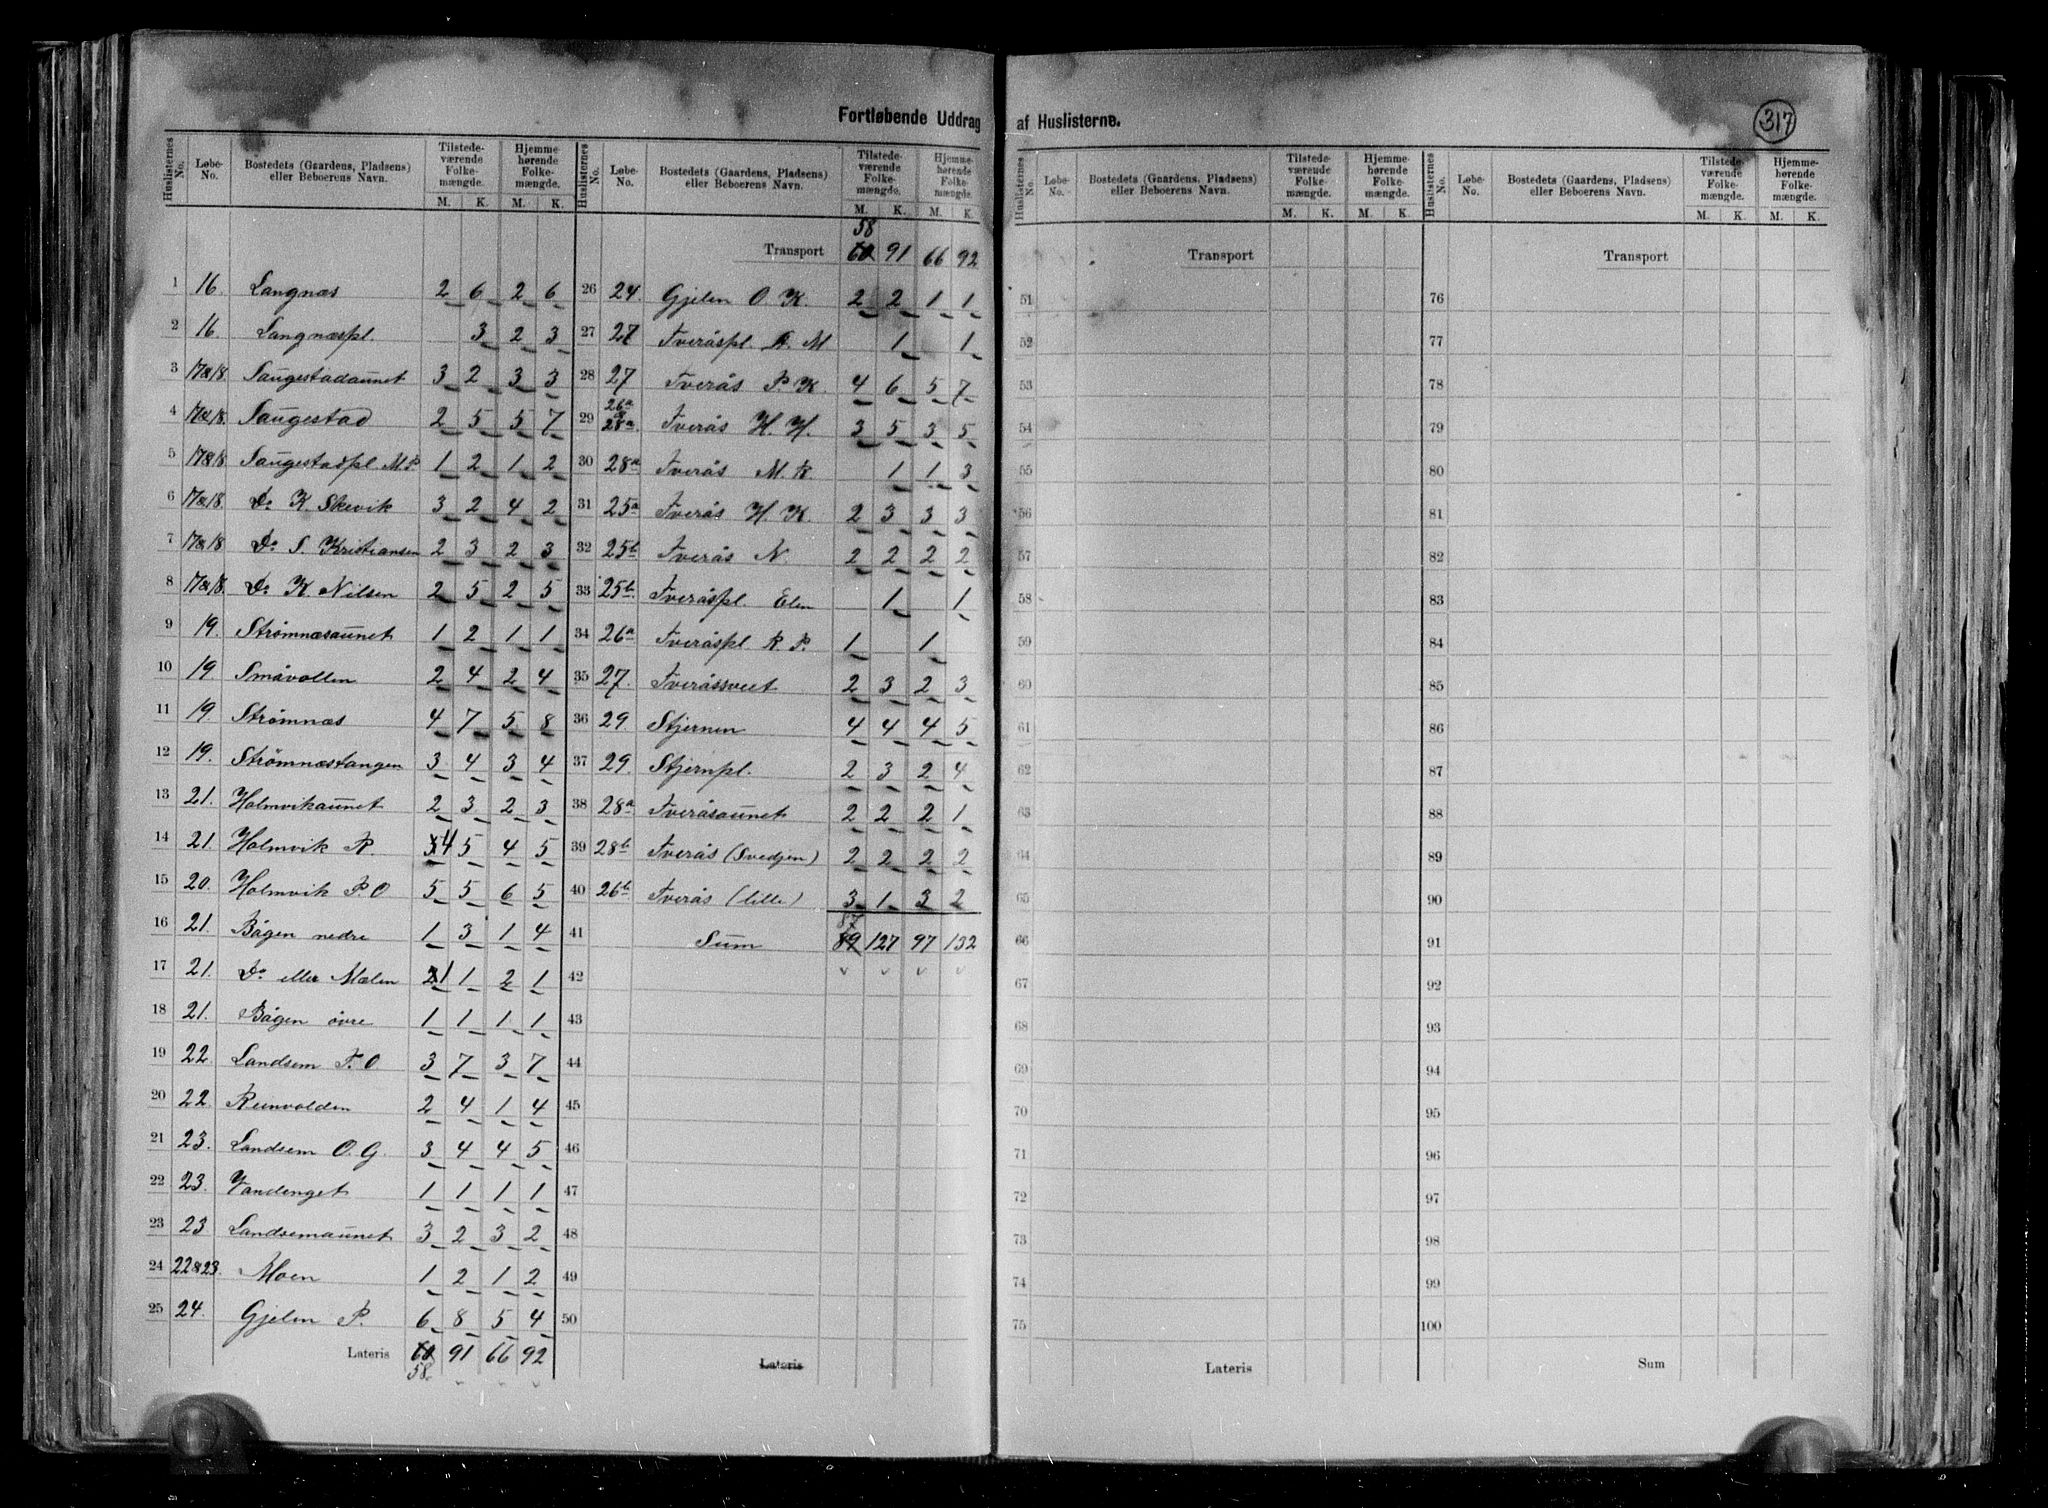 Fortløbende Uddrag af Huslisterne.
317
Huslisternes No. | Løbe-No. | Bostedets (Gaardens, Pladsens) eller Beboerens Navn. | Tilstedeværende Folkemængde. M. K. | Hjemmehørende Folkemængde. M. K.
1 16. Langnæs 2 6 2 6
2 16 Langnæspl. 3 2 3
3 17&18. Saugestadaunet 3 2 3 3
4 17&18. Saugestad 2 5 5 7
5 17&18 Saugestadpl M P 1 2 1 2
6 17&18 Do K. Skevik 3 2 4 2
7 17&18 Do S. Kristiansen 2 3 2 3
8 17&18. Do K. Nilsen 2 5 2 5
9 19. Strømnæsaunet 1 2 1 1
10 19 Småvollen 2 4 2 4
11 19. Strømnæs 4 7 5 8
12 19. Strømnæstangen 3 4 3 4
13 21. Holmvikaunet 2 3 2 3
14 21. Holmvik R. 4 5 4 5
15 20. Holmvik P. O 5 5 6 5
16 21. Bågen nedre 1 3 1 4
17 21. Do eller Mælen 1 1 2 1
18 21. Bågen øvre 1 1 1 1
19 22 Landsem T. O 3 7 3 7
20 22. Reinvolden 2 4 1 4
21 23. Landsem O. G. 3 4 4 5
22 23. Vandenget 1 1 1 1
23 23 Landsemaunet 3 2 3 2
24 22&23. Moen 1 2 1 2
25 24. Gjelen P. 6 8 5 4
Lateris 60 91 66 92
58.
Huslisternes No. | Løbe-No. | Bostedets (Gaardens, Pladsens) eller Beboerens Navn. | Tilstedeværende Folkemængde. M. K. | Hjemmehørende Folkemængde. M. K.
58
Transport 60 91 66 92
26 24. Gjelen O. K. 2 2 1 1
27 27 Tveråspl. A. M 1 1
28 27 Tverås P. K. 4 6 5 7
29 26a & 28a. Tverås H. H. 3 5 3 5
30 28a Tverås M. K. 1 1 3
31 25a Tverås H. K. 2 3 3 3
32 25b Tverås N. 2 2 2 2
33 25b. Tveråspl. Elen 1 1
34 26a Tveråspl. R. P. 1 1
35 27. Tveråssveet 2 3 2 3
36 29. Stjernen 4 4 4 5
37 29. Stjernpl. 2 3 2 4
38 28a Tveråsaunet 2 2 2 1
39 28b Tverås (Svedjen) 2 2 2 2
40 26b Tverås (lille) 3 1 3 2
87
41 Sum 89 127 97 132
42
43
44
45
46
47
48
49
50
Lateris
Huslisternes No. | Løbe-No. | Bostedets (Gaardens, Pladsens) eller Beboerens Navn. | Tilstedeværende Folkemængde. M. K. | Hjemmehørende Folkemængde. M. K.
Transport
51
52
53
54
55
56
57
58
59
60
61
62
63
64
65
66
67
68
69
70
71
72
73
74
75
Lateris
Huslisternes No. | Løbe-No. | Bostedets (Gaardens, Pladsens) eller Beboerens Navn. | Tilstedeværende Folkemængde. M. K. | Hjemmehørende Folkemængde. M. K.
Transport
76
77
78
79
80
81
82
83
84
85
86
87
88
89
90
91
92
93
94
95
96
97
98
99
100
Sum